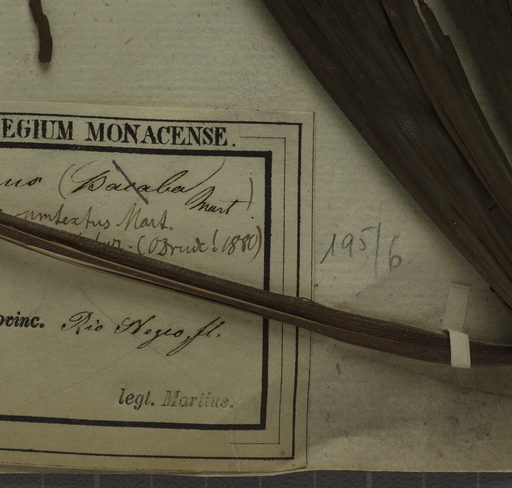 EGIUM MONACENSE.
(Bacaba Mart.)
Mart.
(Drude! 1880)
195/6
ovinc. Rio Negro, fl.
legt. Martius.